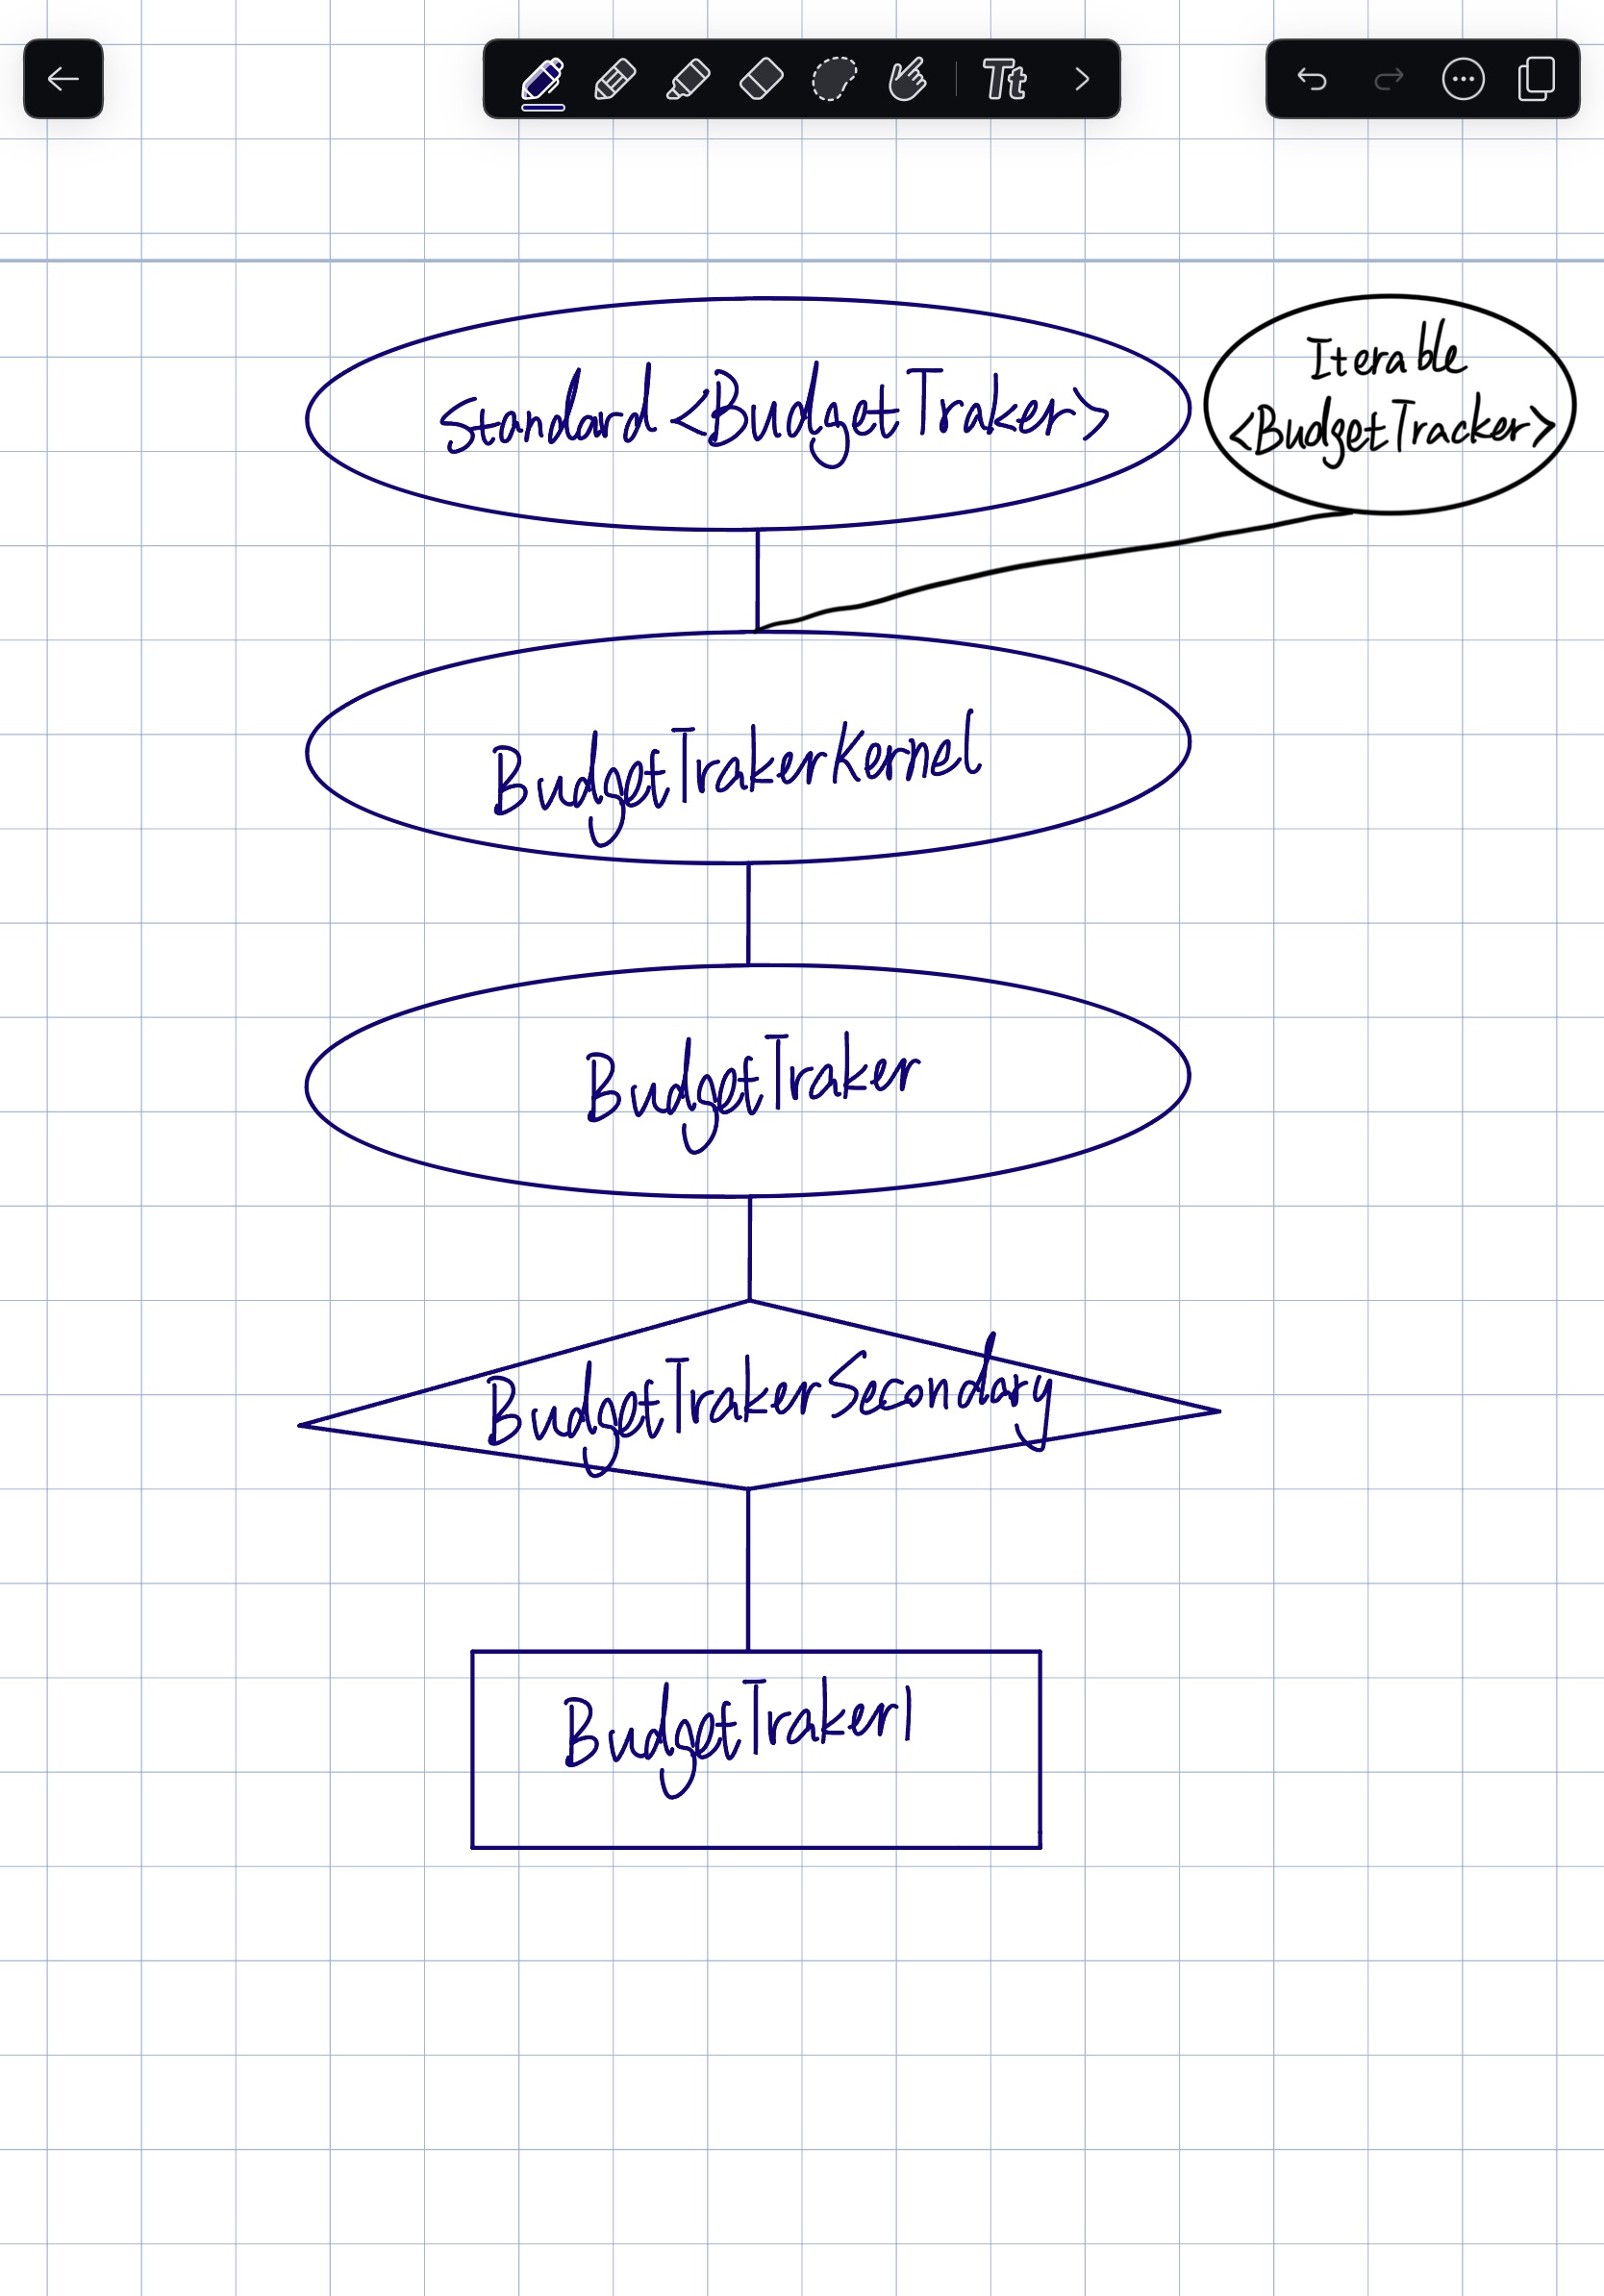 Tt
Standard <BudgetTraker>
Iterable
<BudgetTracker>
BudgetTrakerKernel
BudgetTraker
BudgetTrakerSecondary
BudgetTraker1